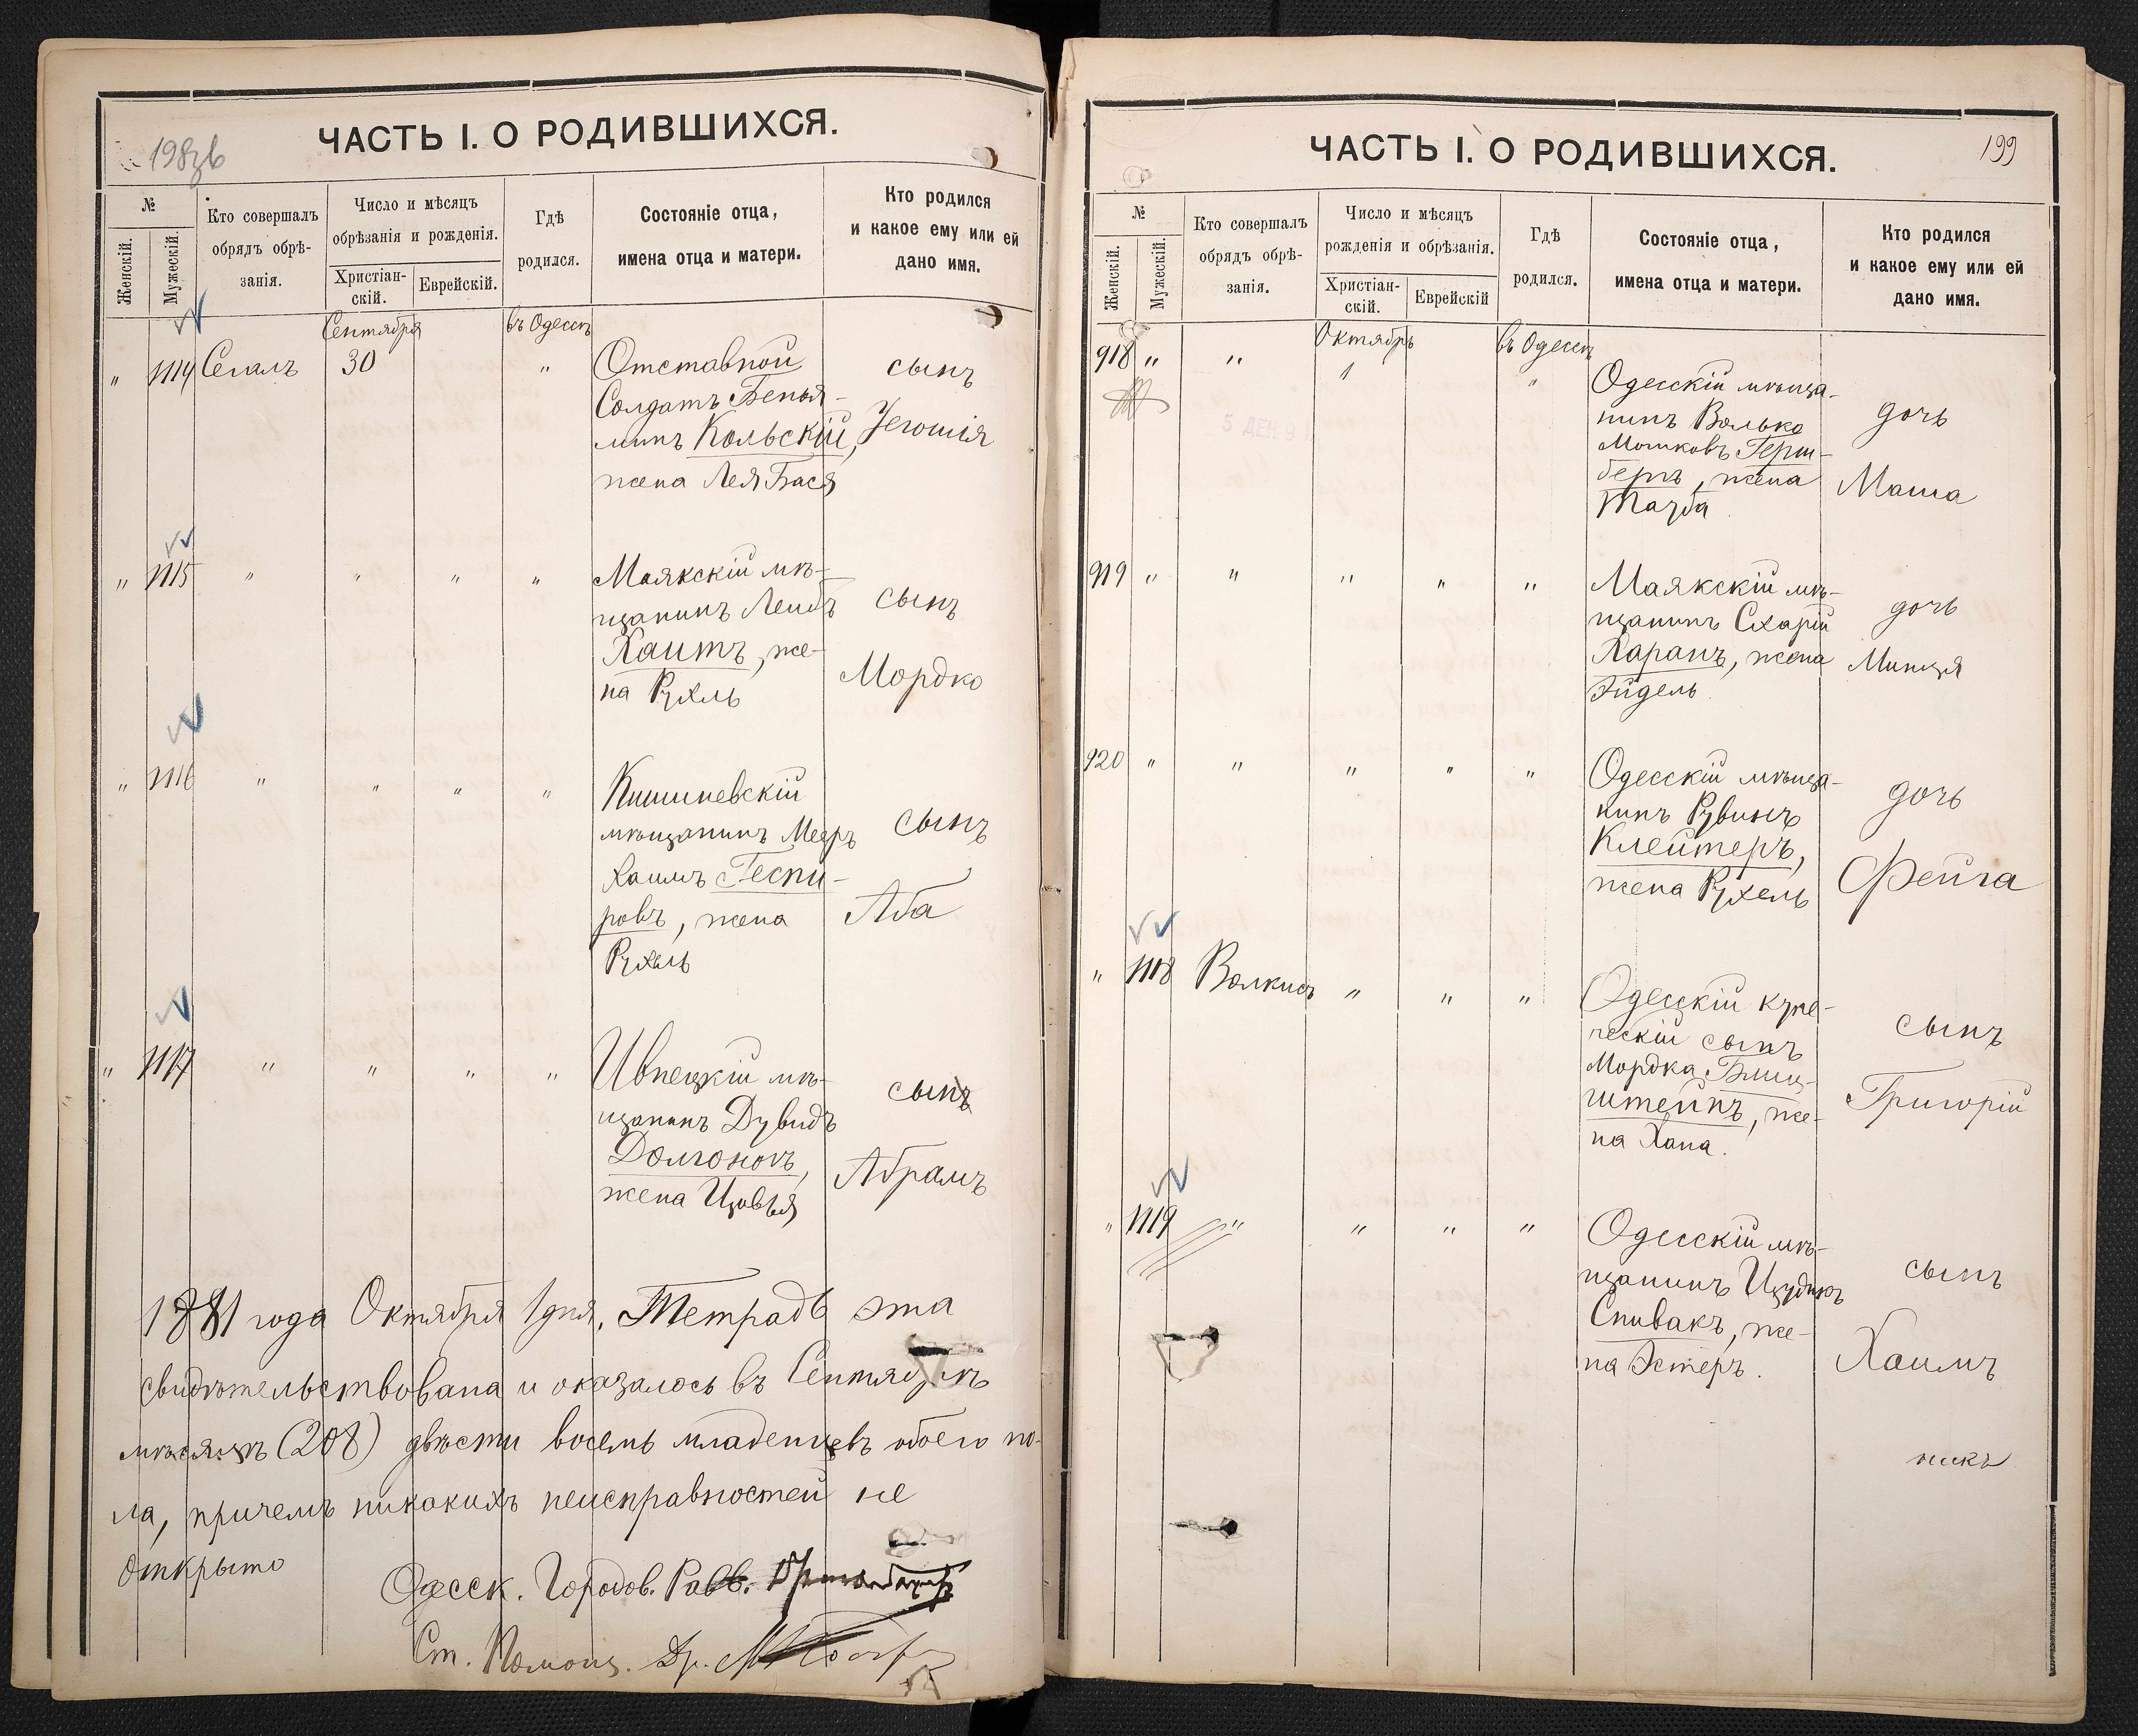 198 об
ЧАСТЬ I. О РОДИВШИХСЯ.
№
Женскій.
Мужескій.
Кто совершалъ
обрядъ обрѣ-
занія.
Число и мѣсяцъ
обрѣзанія и рожденія.
Христіан-
скій.
Еврейскій.
Гдѣ
родился.
Состояніе отца,
имена отца и матери.
Кто родился
и какое ему или ей
дано имя.
Сентября
въ Одессѣ
" 1114 Сегалъ 30 "
Отставной
Солдатъ Бенья-
минъ Кольскій,
жена Лея Бася
сынъ
Іегошія
" 1115 " " " "
Маякскій мѣ-
щанинъ Лейбъ
Хаитъ, же-
на Рухль
сынъ
Мордко
" 1116 " " " "
Кишиневскій
мѣщанинъ Мееръ
Хаимъ Геспи-
ровъ, жена
Рухль
сынъ
Аба
" 1117 " " " "
мѣ-
щанинъ Дувидъ
Долгоновъ,
жена Цивья
сынъ
Абрамъ
1881 года Октября 1 дня. Тетрадь эта
свидѣтельствована и оказалось въ Сентябрѣ
мѣсяцѣ (208) двѣсти восемь младенцевъ обоего по-
ла, причемъ никакихъ неисправностей не
открыто
Одесск. Городов. Равв.
Ст. Помощ. Др.
199
ЧАСТЬ I. О РОДИВШИХСЯ.
№
Женскій.
Мужескій.
Кто совершалъ
обрядъ обрѣ-
занія.
Число и мѣсяцъ
рожденія и обрѣзанія.
Христіан-
скій.
Еврейскій
Гдѣ
родился.
Состояніе отца,
имена отца и матери.
Кто родился
и какое ему или ей
дано имя.
Октябрь
въ Одессѣ
918 " " 1 "
5 ДЕК 9
Одесскій мѣща-
нинъ Волько
Мошковъ Герш-
бергъ, жена
дочь
Маша
919 " " " " "
Маякскій мѣ-
щанинъ Схарій
Харанъ, жена
Эйдель
дочь
Минця
920 " " " " "
Одесскій мѣща-
нинъ Рувинъ
Клейтеръ,
жена Рухель
дочь
Фейга
" 1118 Волкисъ " " "
Одесскій купе-
ческій сынъ
Мордка Блиц-
штейнъ, же-
на Хана.
сынъ
Григорій
" 1119 " " " "
Одесскій мѣ-
щанинъ Цудикъ
Спивакъ, же-
на Эстеръ.
сынъ
Хаимъ